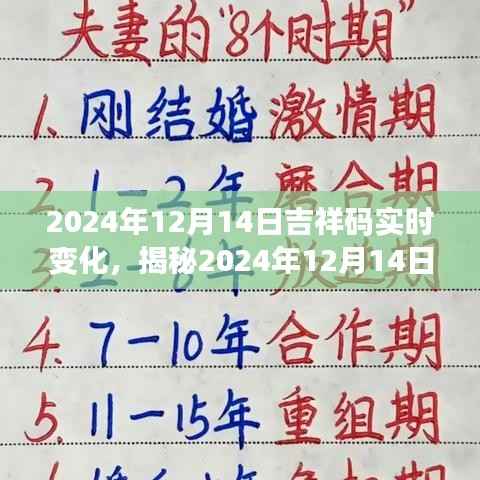 夫妻的“8个时期”
1. 刚结婚 激情期
2. 1-2年 磨合期
2024年12月14日吉祥码实时
变化，揭秘2024年12月14日
4. 7-10年 合作期
5. 11-15年 重组期